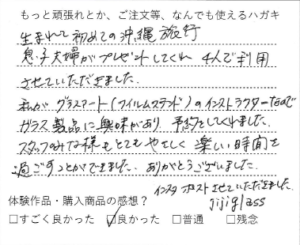 もっと頑張れとか、ご注文等、なんでも使えるハガキ
生まれて初めての沖縄旅行
息子夫婦がプレゼントしてくれ 4人で利用
させていただきました。
私が グラスアート(フィルムステンド)のインストラクターなので
ガラス製品に興味があり 予約をしてくれました。
スタッフのみな様もとてもやさしく 楽しい時間を
過ごすことができました。ありがとうございました。
インスタ ポストさせていただきました
体験作品・購入商品の感想? jijiglass
□すごく良かった ☑良かった □普通 □残念